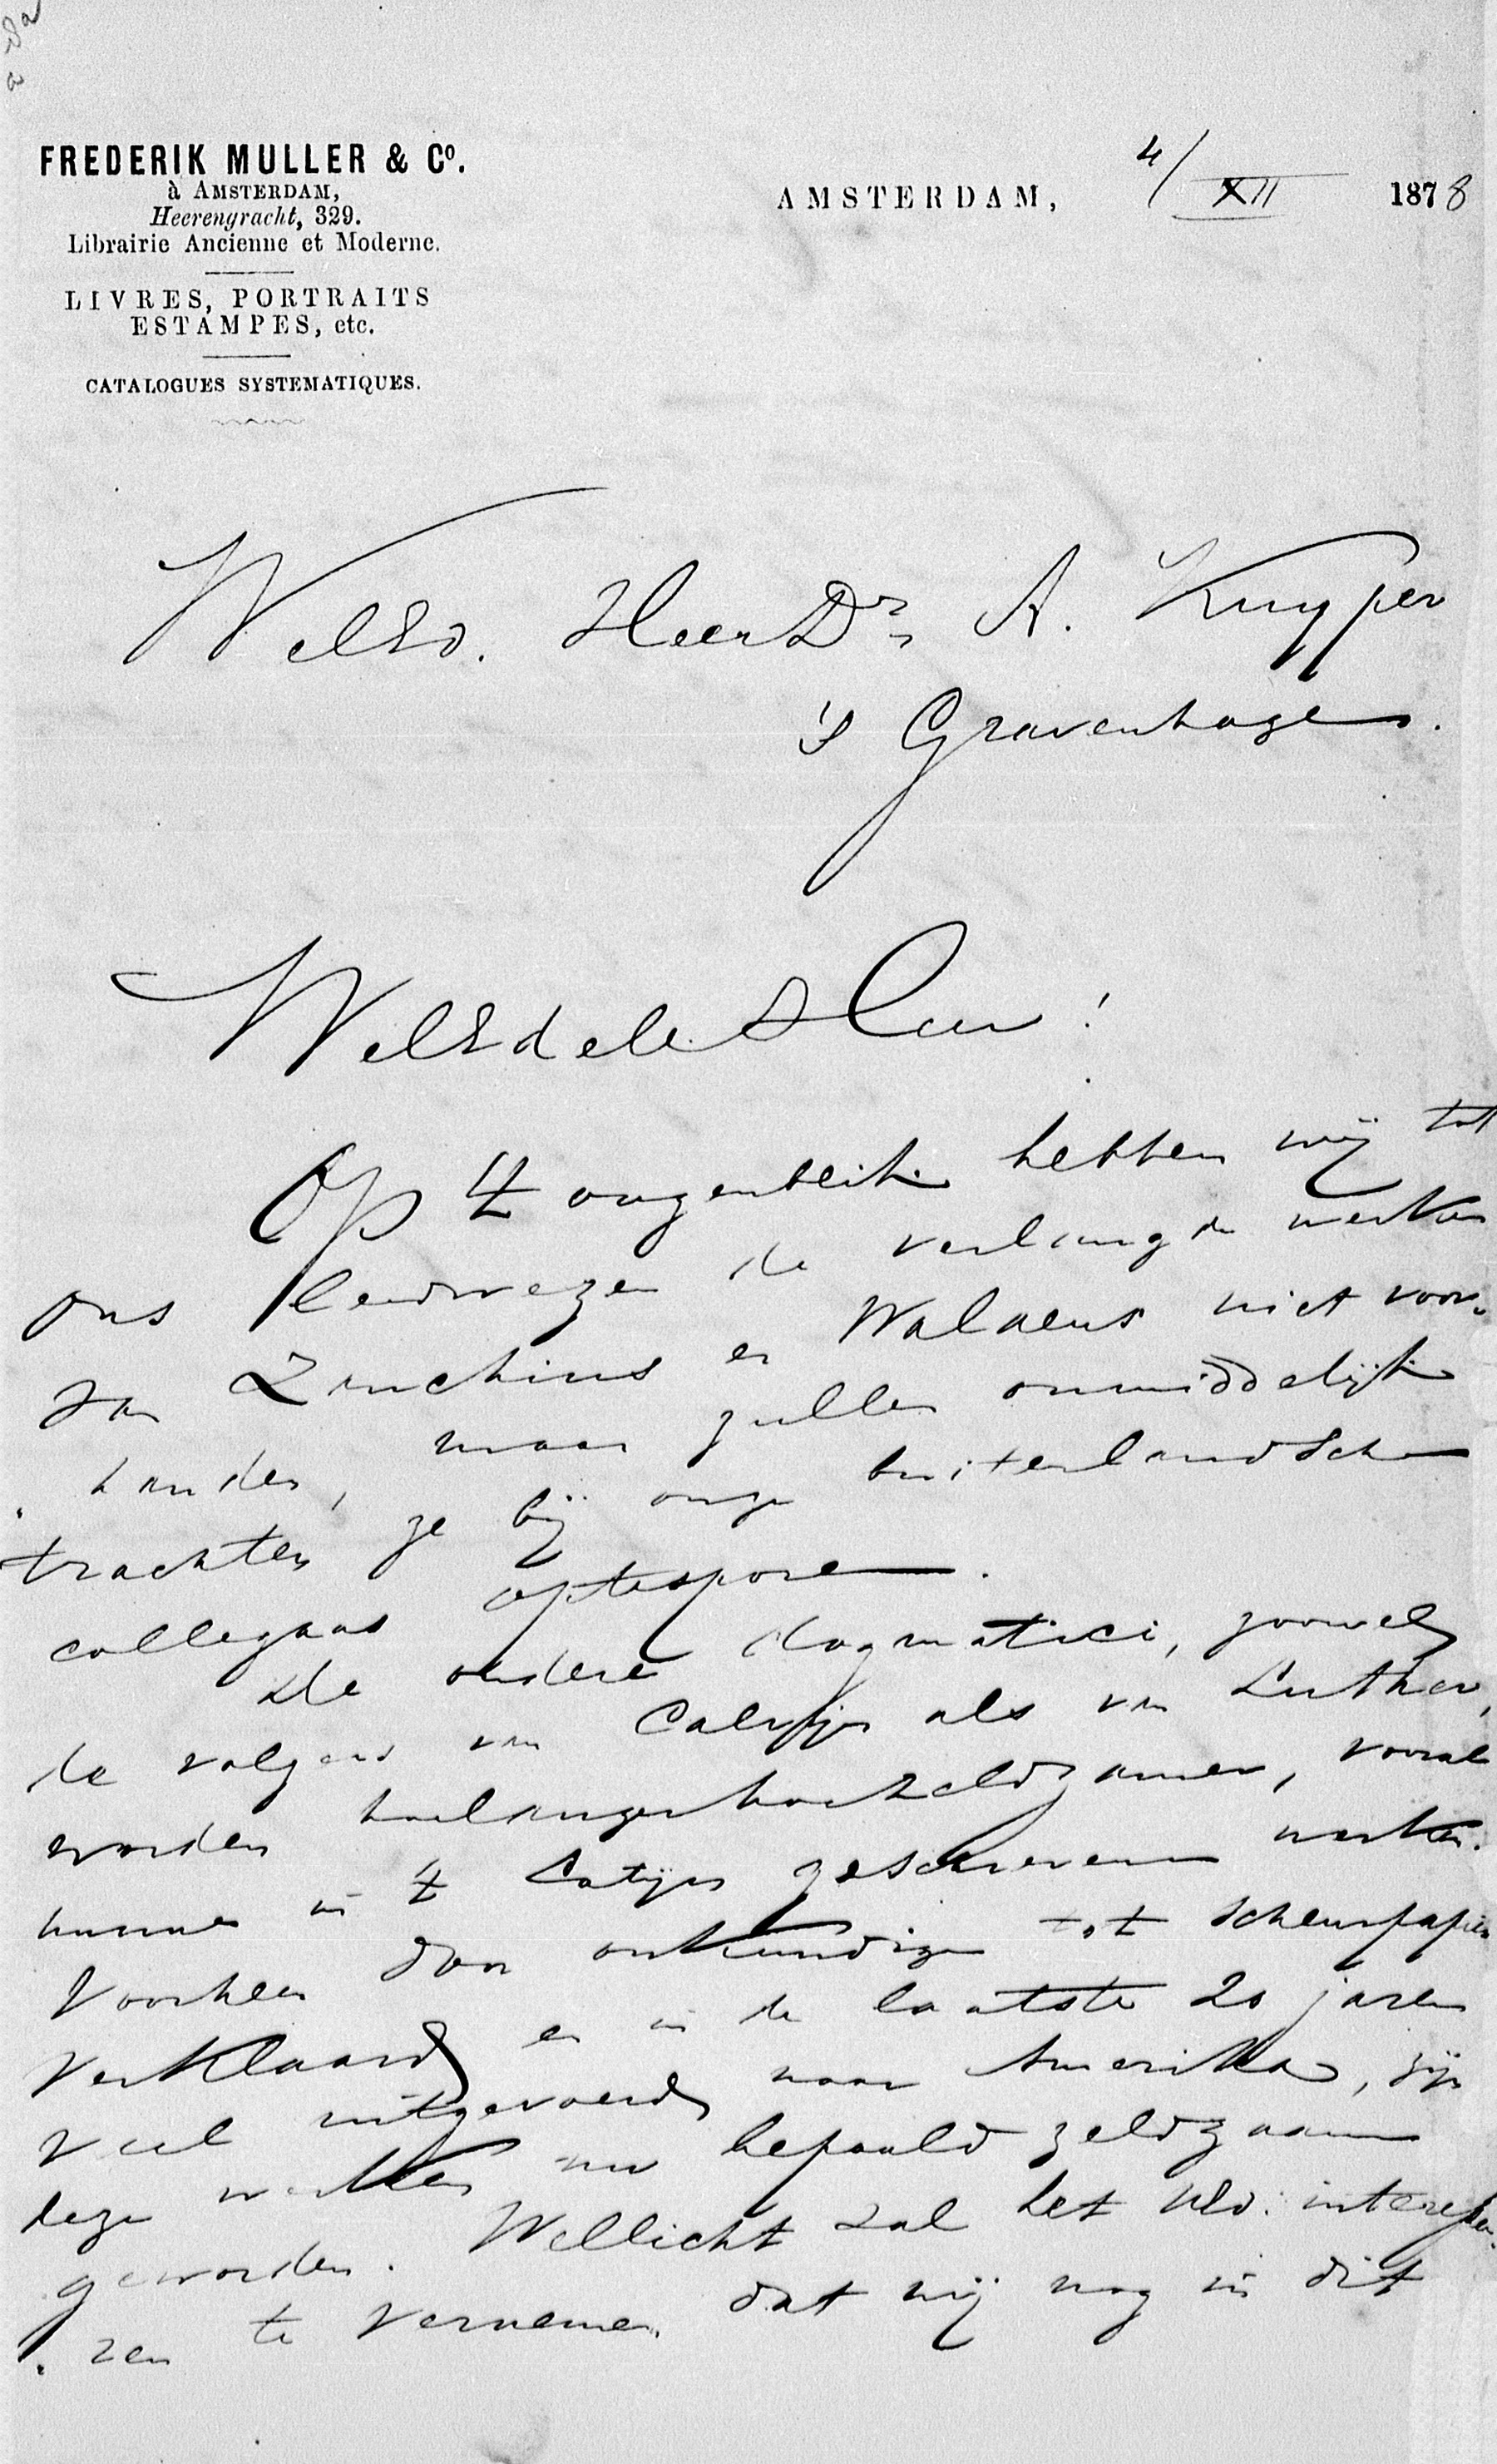 FREDERIK MULLER & Cº.
à AMSTERDAM,
Heerengracht, 329.
Librairie Ancienne et Moderne.
LIVRES, PORTRAITS
ESTAMPES, etc.
CATALOGUES SYSTEMATIQUES.
AMSTERDAM, 4/XII 1878
WelEd. Heer Dr. A. Kuyper
's Gravenhage.
WelEdele Heer!
Op 't oogenblik hebben wij tot
ons leedwezen de verlangde werken
van Zanchius en Walaeus niet voor-
handen, maar zullen onmiddelijk
trachten ze bij onze buitenlandsche
collegaas optesporen.
De oudere dogmatici, zoowel
de volgers van Calvijn als van Luther,
worden hoelangerhoezeldzamer, vooral
hunne in 't Latijn geschreven werken.
Voorheen door onkundigen tot scheurpapier
verklaard en in de laatste 20 jaren
veel uitgevoerd naar Amerika, zijn
deze werken nu bepaald zeldzaam
geworden. Wellicht zal het UEd: interesse-
ren te vernemen dat wij nog in dit